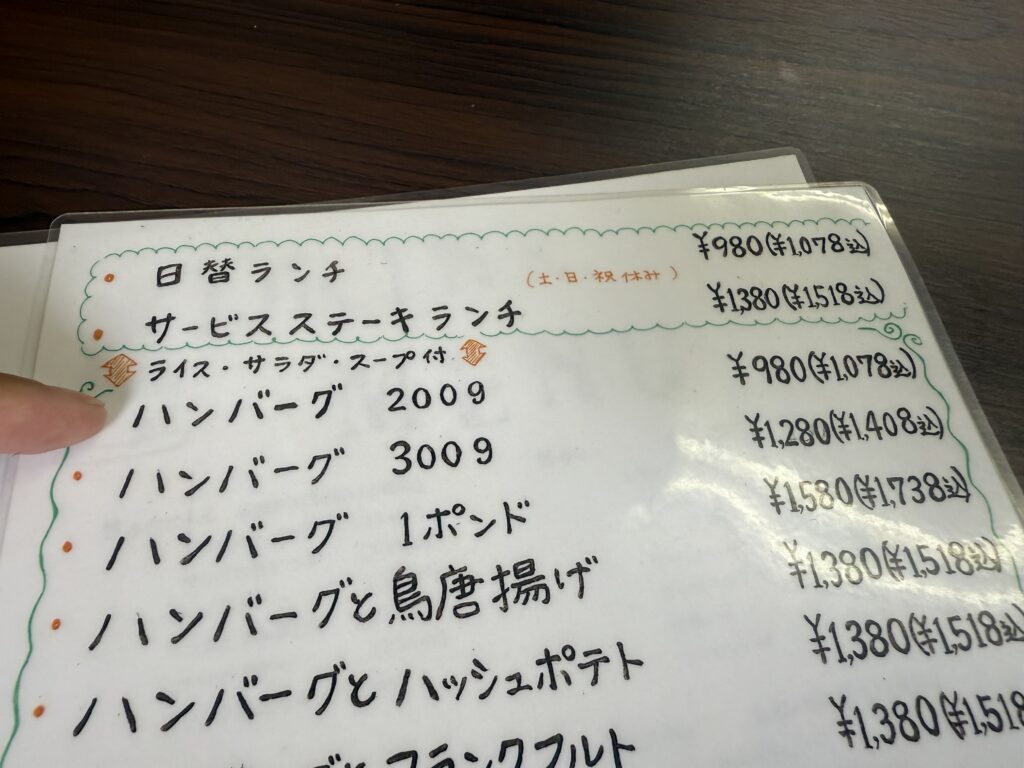 日替ランチ (土・日・祝休み) ¥980(¥1,078込)
サービスステーキランチ ¥1380(¥1,518込)
ライス・サラダ・スープ付
ハンバーグ 200g ¥980(¥1,078込)
ハンバーグ 300g ¥1,280(¥1,408込)
ハンバーグ 1ポンド ¥1,580(¥1,738込)
ハンバーグと鳥唐揚げ ¥1,380(¥1,518込)
ハンバーグとハッシュポテト ¥1,380(¥1,518込
フランクフルト ¥1,380(¥1,518